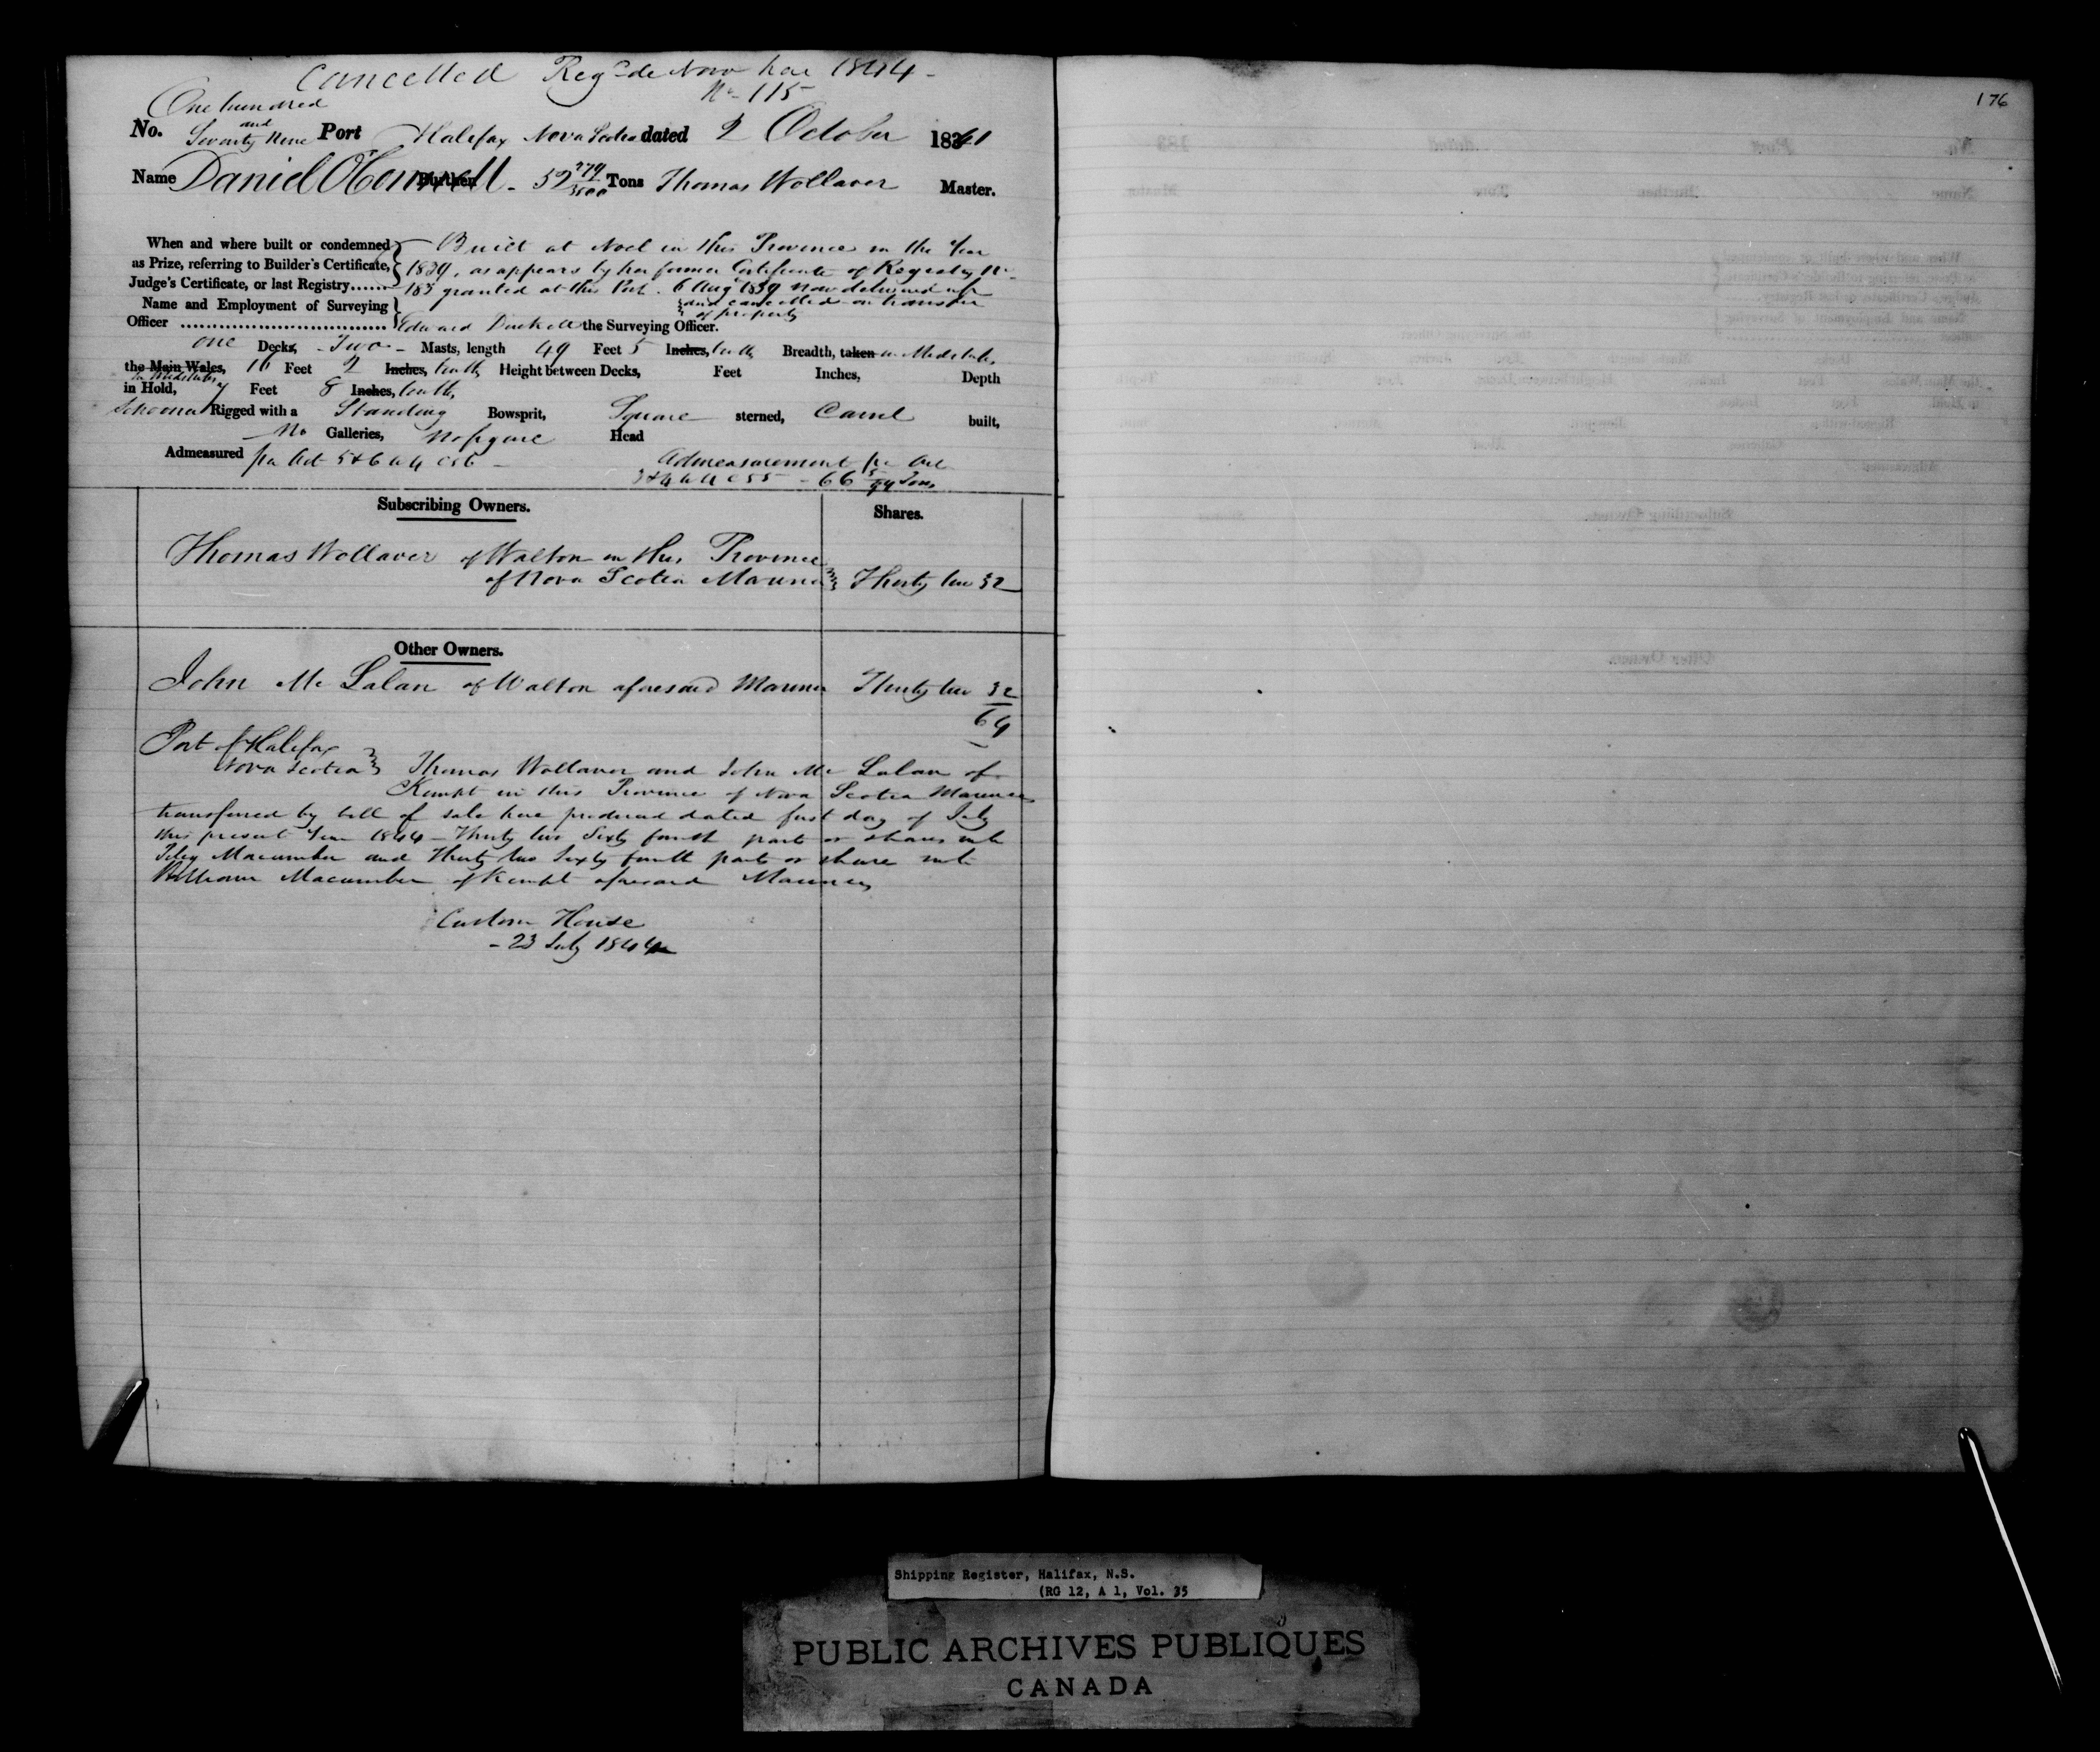 Cancelled Reg<sup>d</sup> de Novo here 1844 -
N<sup>o</sup> - 115
176
One hundred
and
No. Seventy Nine Port Halifax Nova Scotia dated 2 October 1841
Name Daniel O'Connell - 52 279/3500 Tons Thomas Wollaver Master.
When and where built or condemned Built at Noel in this Province in the Year
as Prize, referring to Builder's Certificate, 1839, as appears by her former Certificate of Registry No
Judge's Certificate, or last Registry...... 183 granted at this Port. 6 Aug 1839 now delivered up
Name and Employment of Surveying and cancelled on transfer
of property
Officer Edward the Surveying Officer.
One Decks, - Two - Masts, length 49 Feet 5 Inches, tenths Breadth, taken in Midships
the Main Wales, 16 Feet 2 Inches, tenths Height between Decks, Feet Inches, Depth
in Midships
in Hold, 7 Feet 8 Inches, tenths
Schooner Rigged with a Standing Bowsprit, Square sterned, Carvel built,
No Galleries, No figure Head
Admeasured per Act 5 & 6 W 4 C 56 - Admeasurement per Act
3 & 4 W 4 C 55 - 66 5/94 Tons
Subscribing Owners. Shares.
Thomas Wollaver of Walton in this Province
of Nova Scotia Mariner Thirty two 32
Other Owners.
John Mc Lalan of Walton aforesaid Mariner Thirty two 32
64
Port of Halifax
Nova Scotia Thomas Wollaver and John Mc Lalan of
Kempt in this Province of Nova Scotia Mariners
transferred by bill of sale here produced dated first day of July
this present Year 1844 - Thirty two Sixty fourth parts or shares unto
Macumber and Thirty two Sixty fourth parts or share unto
William Macumber of Kempt aforesaid Mariners
Custom House
- 23 July 1844
Shipping Register, Halifax, N.S.
(RG 12, A 1, Vol. 35
PUBLIC ARCHIVES PUBLIQUES
CANADA